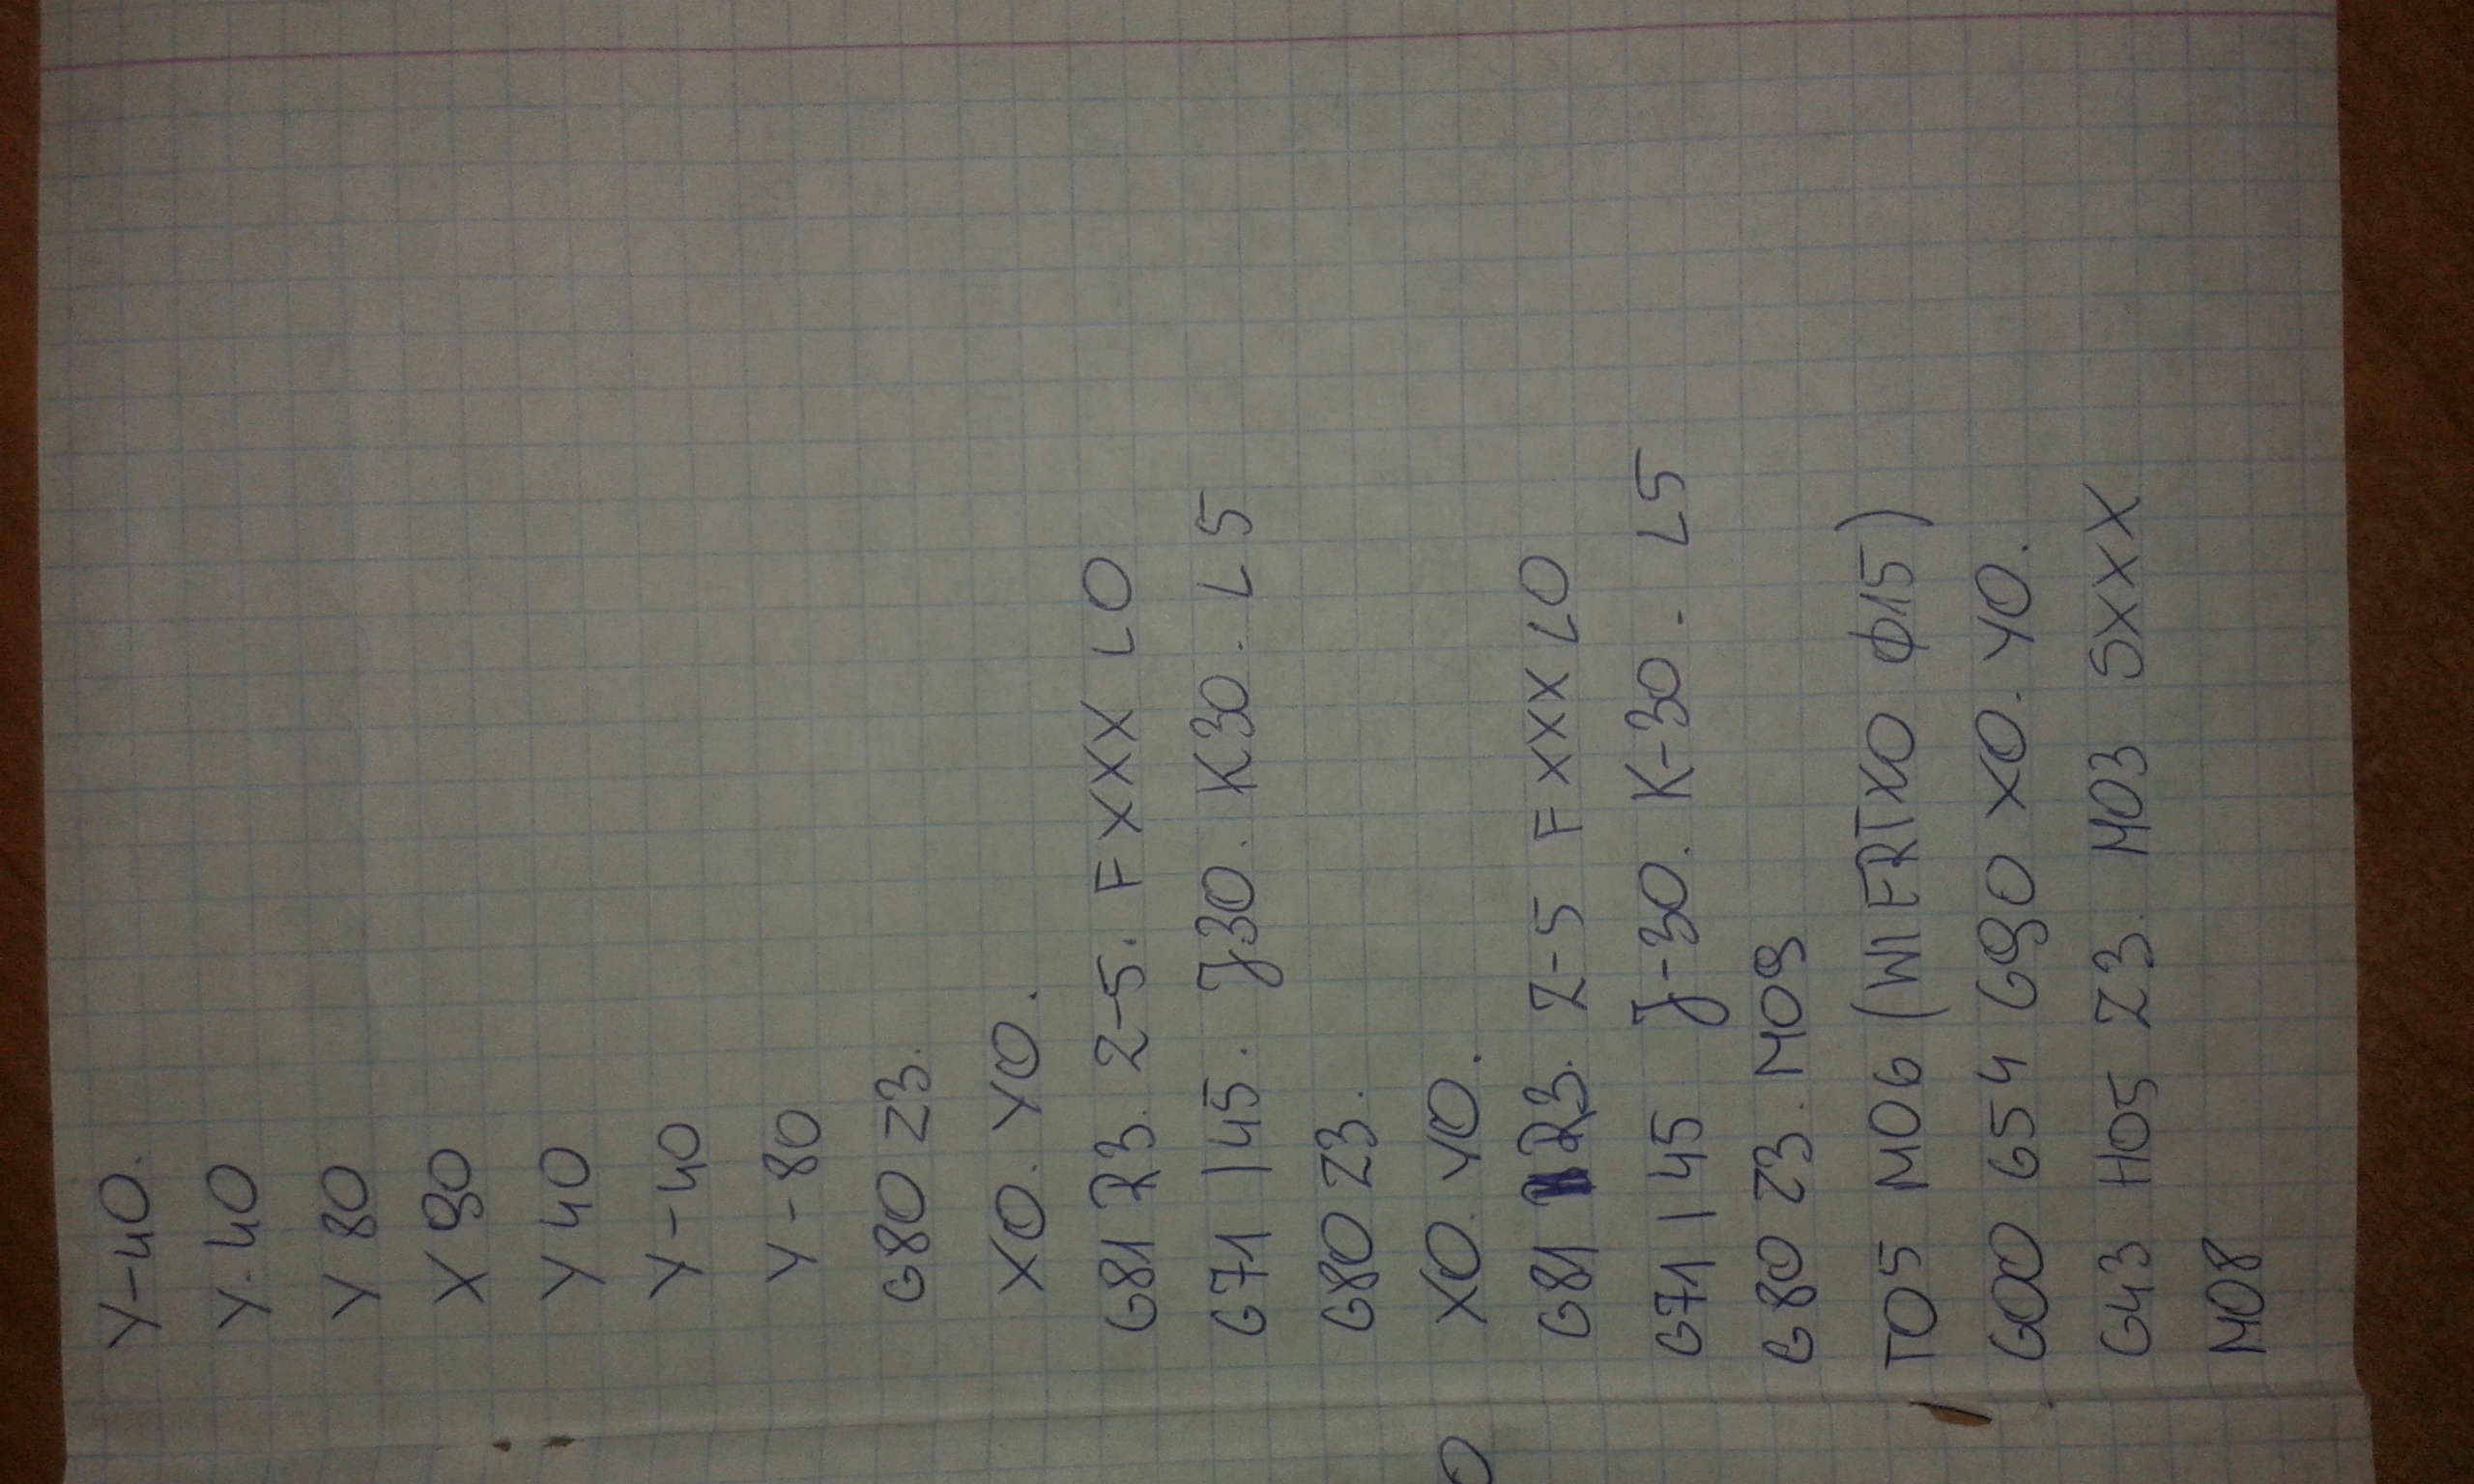 Y-40.
Y-40
Y 80
X 90
Y 40
Y-40
Y-80
G80 Z3.
X0. Y0.
G81 R3. Z-5. F XXX L0
G71 I45. J30. K30. L5
G80 Z3.
X0. Y0.
G81 R3. Z-5 F XXX L0
G71 I45 J-30. K-30. L5
G80 Z3. M09
T05 M06 (WIERTXO ϕ15)
G00 G54 G90 X0. Y0.
G43 H05 Z3. M03 SXXX
M08